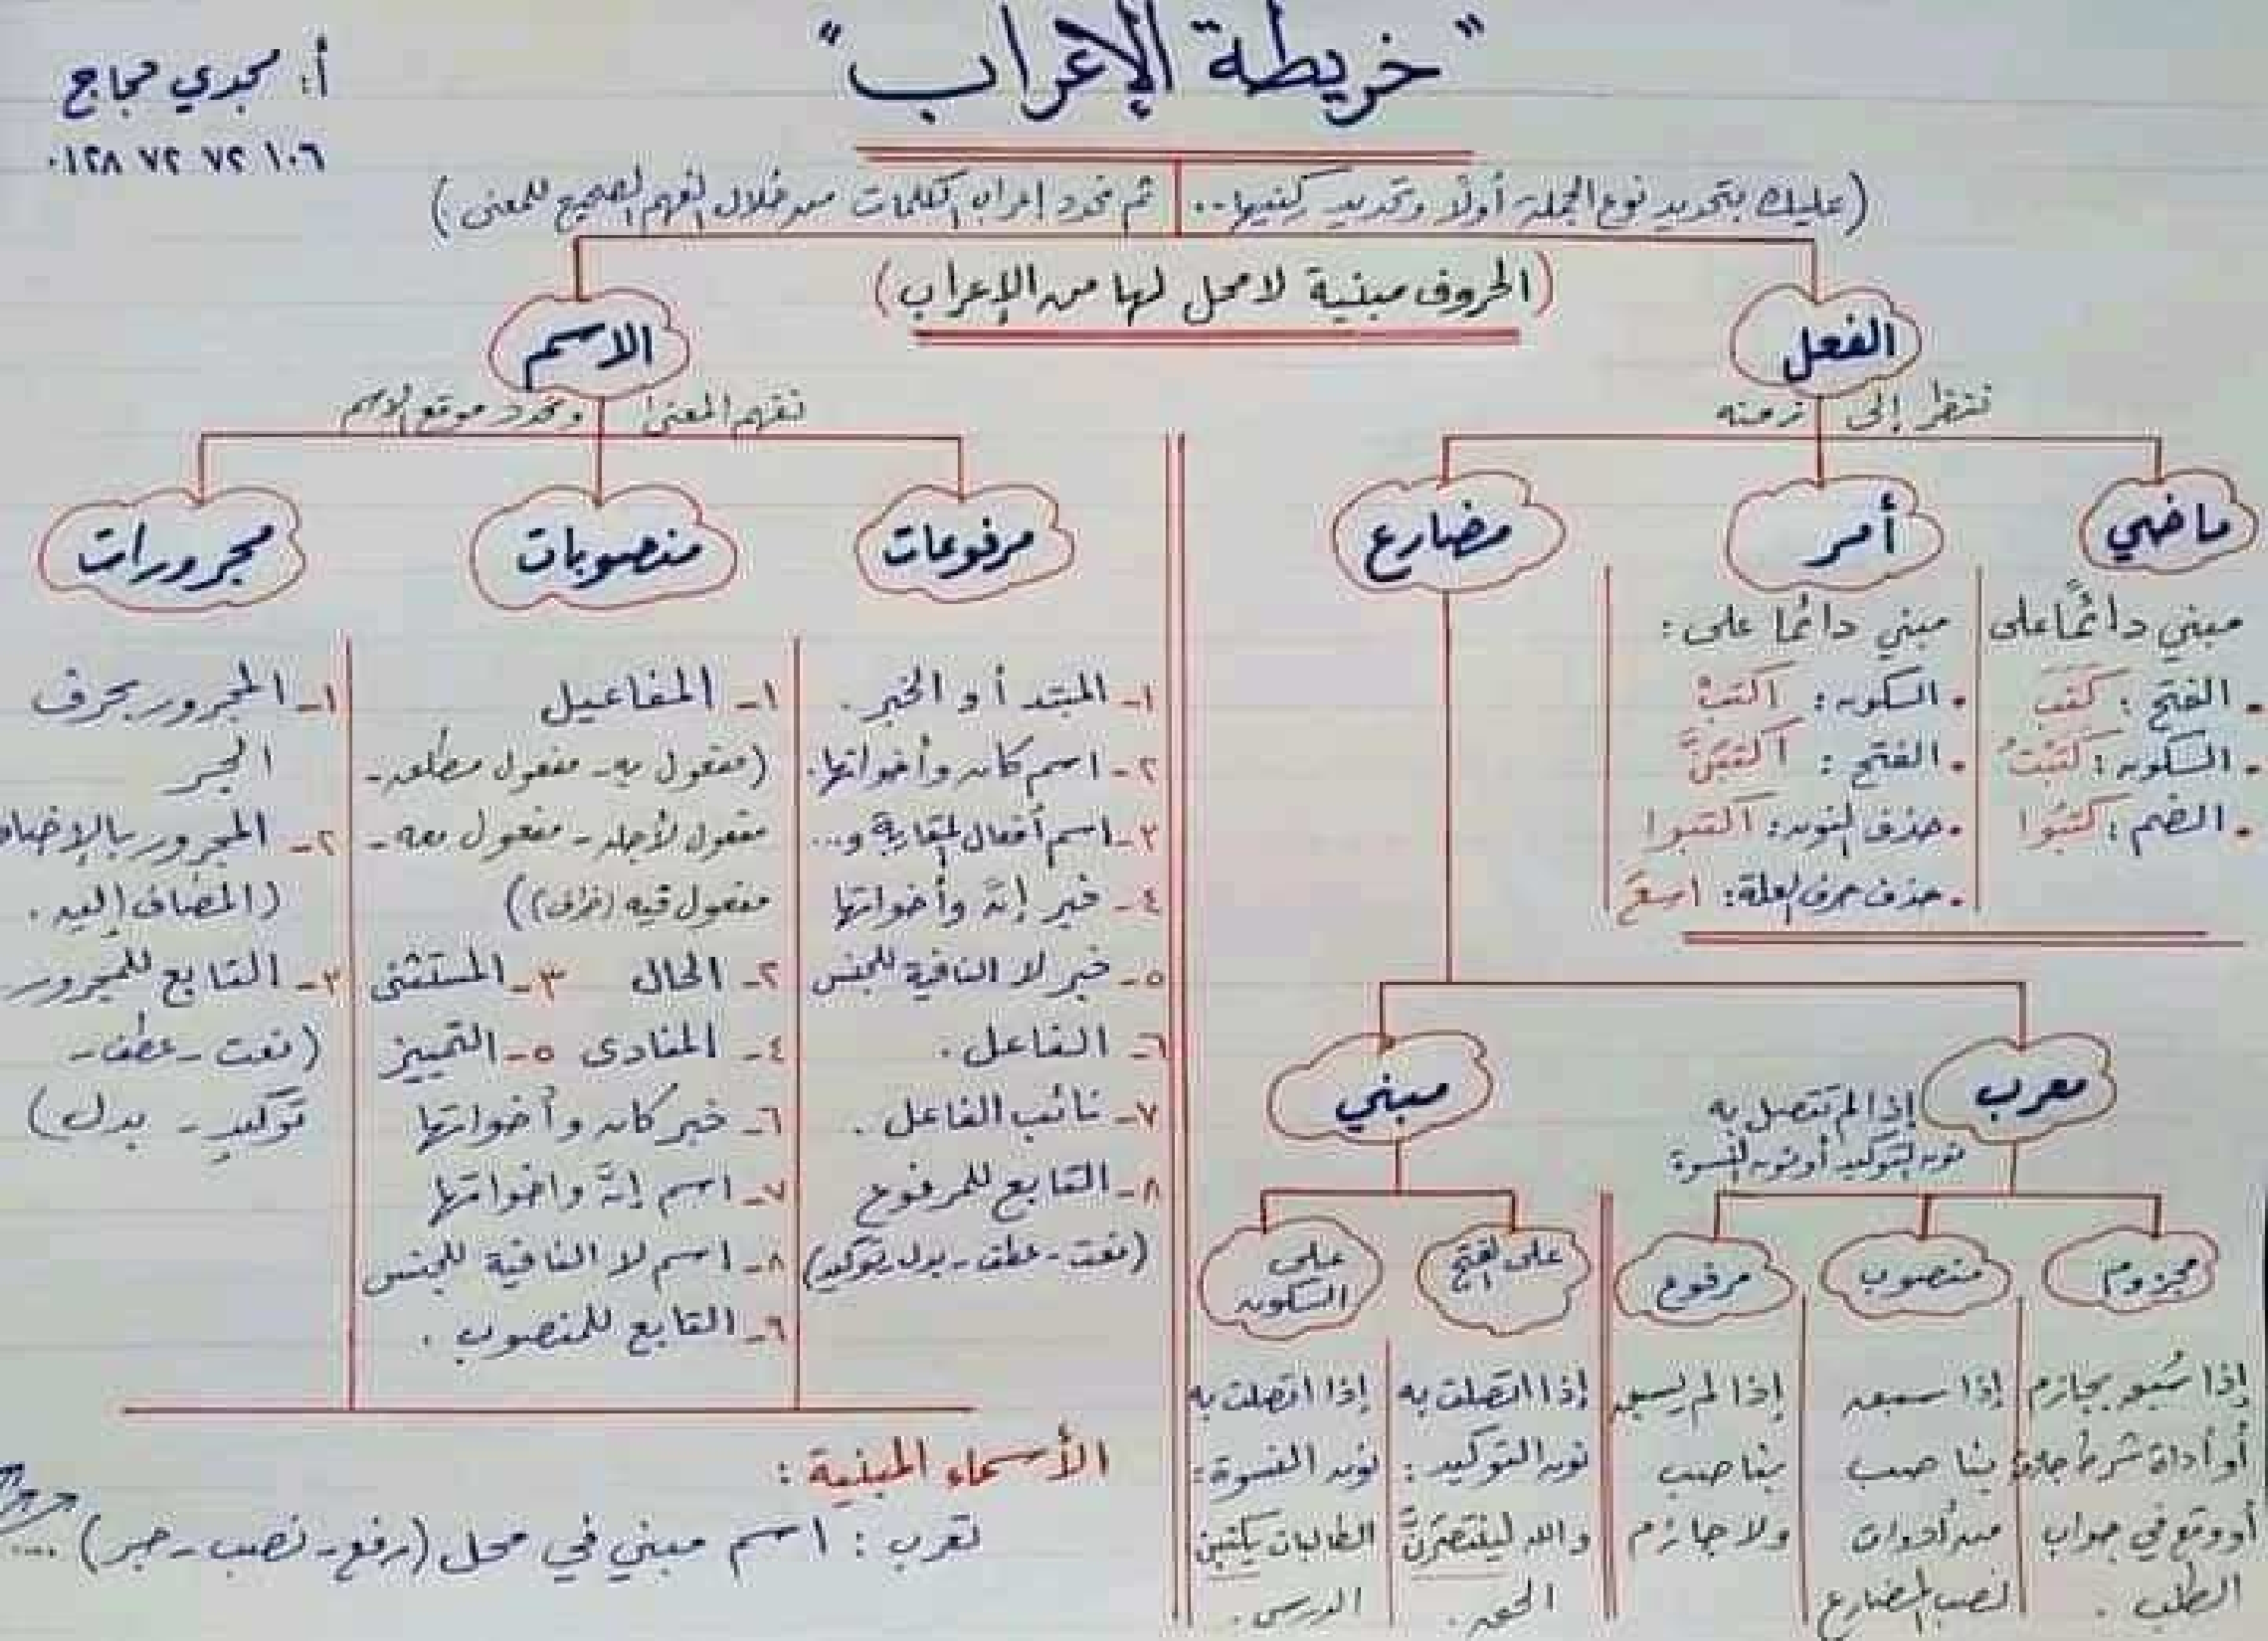 "خريطة الإعراب"
أ: مجدي حجاج
٠١٢٨ ٧٢ ٧٢ ١٠٦
(عليك بتحديد نوع الجملة أولًا وتحديد ركنيها.. ثم تحدد إعراب الكلمات من خلال الفهم الصحيح للمعنى)
(الحروف مبنية لا محل لها من الإعراب)
الفعل
ننظر إلى زمنه
ماضي
مبني دائمًا على
• الفتح: كتبَ
• السكون: كتبْتُ
• الضم: كتبُوا
أمر
مبني دائمًا على:
• السكون: اكتبْ
• الفتح: اكتبَنَّ
• حذف النون: اكتبوا
• حذف حرف العلة: اسعَ
مضارع
معرب
إذا لم تتصل به
نون التوكيد أو نون النسوة
مجزوم
إذا سُبق بجازم
أو أداة شرط جازمة
أو وقع في جواب
الطلب.
منصوب
إذا سبق
بناصب
من أدوات
نصب المضارع
مرفوع
إذا لم يسبق
بناصب
ولا جازم
مبني
على الفتح
إذا اتصلت به
نون التوكيد:
والله لينتصرَنَّ
الحق.
على
السكون
إذا اتصلت به
نون النسوة:
الطالبات يكتبْن
الدرس.
الاسم
نفهم المعنى ونحدد موقع الاسم
مرفوعات
١- المبتدأ و الخبر.
٢- اسم كان وأخواتها.
٣- اسم أفعال المقاربة و...
٤- خبر إنَّ وأخواتها
٥- خبر لا النافية للجنس
٦- الفاعل.
٧- نائب الفاعل.
٨- التابع للمرفوع
(نعت - عطف - بدل - توكيد)
منصوبات
١- المفاعيل
(مفعول به - مفعول مطلق -
مفعول لأجله - مفعول معه -
مفعول فيه (ظرف))
٢- الحال ٣- المستثنى
٤- المنادى ٥- التمييز
٦- خبر كان وأخواتها
٧- اسم إنَّ واخواتها
٨- اسم لا النافية للجنس
٦- التابع للمنصوب.
مجرورات
١- المجرور بحرف
الجر
٢- المجرور بالإضاف
(المضاف إليه.
٣- التابع للمجرور
(نعت - عطف -
توكيد - بدل)
الأسماء المبنية:
تعرب: اسم مبني في محل (رفع - نصب - جر) ....